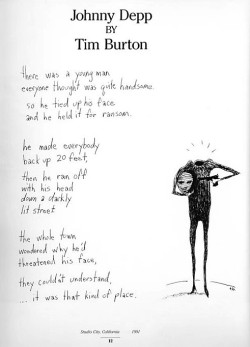 Johnny Depp
BY
Tim Burton
there was a young man
everyone thought was quite handsome.
so he tied up his face
and he held it for ransom.
he made everybody
back up 20 feet,
then he ran off
with his head
down a darkly
lit street
the whole town
wondered why he'd
threatened his face,
they couldn't understand,
... it was that kind of place.
Studio City, California 1991
17